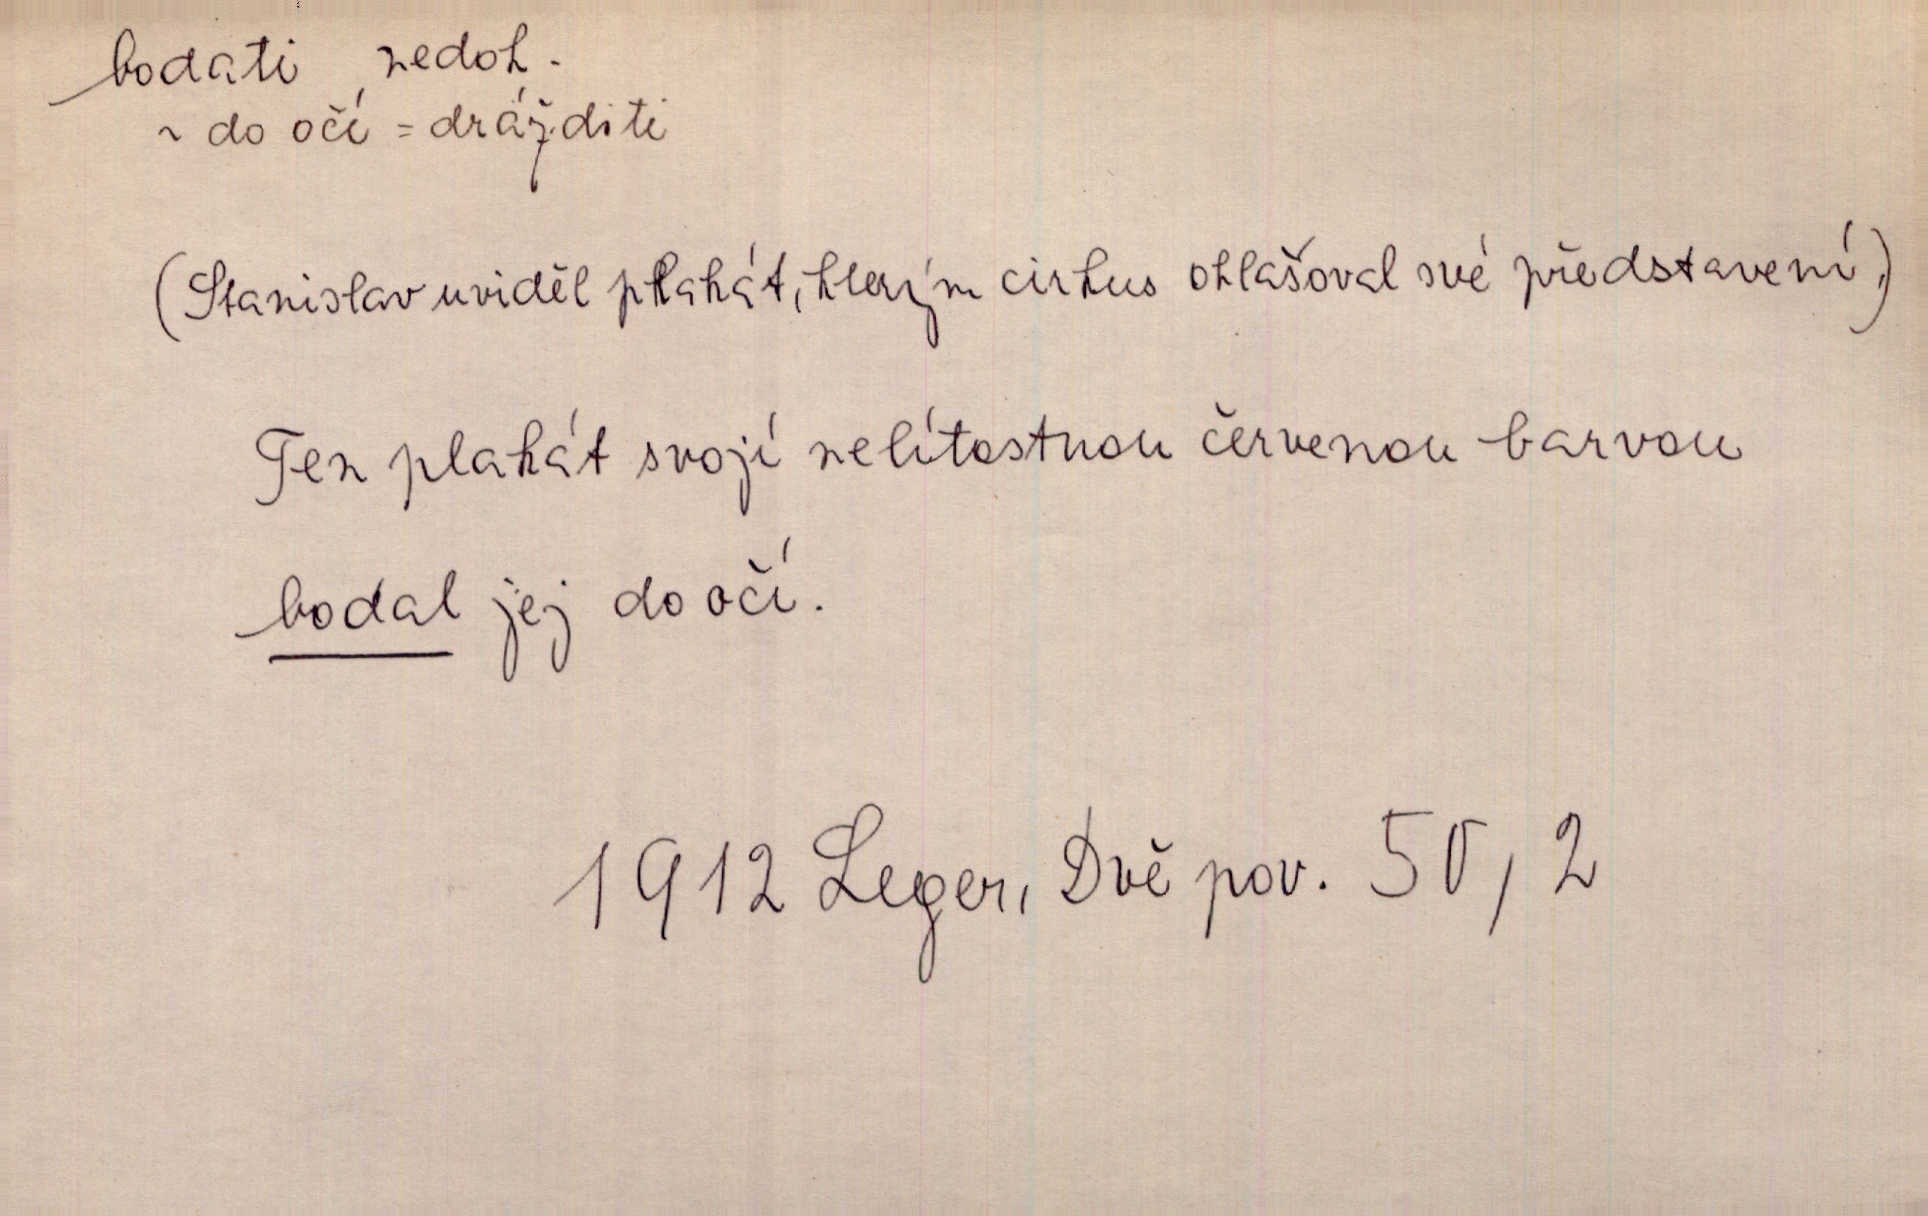 bodati nedok.
~ do očí = drážditi
(Stanislav uviděl plakát, kterým cirkus ohlašoval své představení.)
Ten plakát svojí nelítostnou červenou barvou
bodal jej do očí.
1912 Leger, Dvě pov. 50, 2